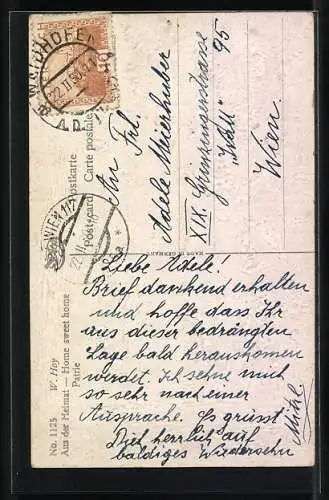 WAIDHOFEN
22.II.30
WIEN 117
Postkarte
Post-card Carte postale
An Frl.
Adele Meierhuber
XIX. Grinzingerstrasse 95
Wien.
MADE IN GERMANY
Liebe Adele!
Brief dankend erhalten
und hoffe dass Ihr
aus dieser bedrängten
Lage bald herauskomen
werdet. Ich sehne mich
so sehr nach einer
Aussprache. Es grüsst
Dich herzlich auf
baldiges Wiedersehn
No. 1125 W. Hey
Aus der Heimat — Home sweet home
Patrie